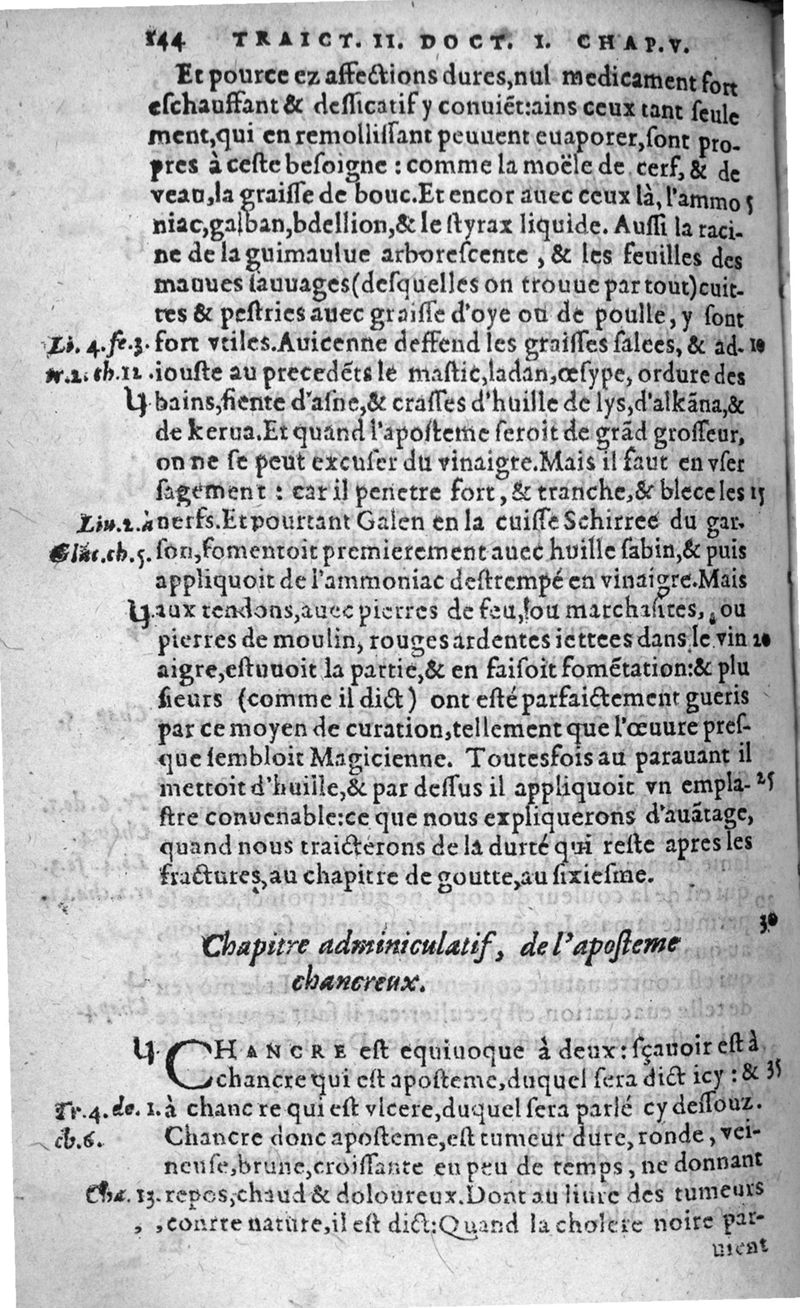 144 TRAICT. II. DOCT. I. CHAP. V.
Et pource ez affections dures,nul medicament fort
eſchauffant & deſſicatif y conuiẽt:ains ceux tant ſeule
ment,qui en remolliſſant peuuent euaporer,ſont pro-
pres à ceſte beſoigne : comme la moële de cerf, & de
veau,la graiſſe de bouc.Et encor auec ceux là, l'ammo 5
niac,galban,bdellion,& le ſtyrax liquide. Auſſi la raci-
ne de la guimaulue arboreſcente , & les feuilles des
mauues ſauuages(deſquelles on trouue par tout)cuit-
tes & peſtries auec graiſſe d'oye ou de poulle, y ſont
Li. 4. fe. 3. fort vtiles.Auicenne deffend les graiſſes ſalees, & ad- 10
tr. 2. ch. 11 . iouſte au precedẽts le maſtic,ladan,œſype, ordure des
bains,fiente d'aſne,& craſſes d'huille de lys,d'alkãna,&
de kerua.Et quand l'apoſteme ſeroit de grãd groſſeur,
on ne ſe peut excuſer du vinaigre.Mais il faut en vſer
ſagement : car il penetre fort, & tranche,& blece les 15
Liu. 2. à nerfs.Et pourtant Galen en la cuiſſe Schirree du gar-
Glau. ch. 5. ſon,fomentoit premierement auec huille ſabin,& puis
appliquoit de l'ammoniac deſtrempé en vinaigre.Mais
aux tendons,auec pierres de feu,ou marchaſites, ou
pierres de moulin, rouges ardentes iettees dans le vin 20
aigre,eſtuuoit la partie,& en faiſoit fomẽtation:& plu
ſieurs (comme il dict) ont eſté parfaictement gueris
par ce moyen de curation,tellement que l'œuure preſ-
que ſembloit Magicienne. Toutesfois au parauant il
mettoit d'huille,& par deſſus il appliquoit vn empla- 25
ſtre conuenable:ce que nous expliquerons d'auãtage,
quand nous traicterons de la durté qui reſte apres les
fractures,au chapitre de goutte,au ſixieſme.
30
Chapitre adminiculatif, de l'apoſteme
chancreux.
CHANCRE eſt equiuoque à deux:ſçauoir eſt à
chancre qui eſt apoſteme,duquel ſera dict icy : & 35
Tr. 4. do. 1. à chanc re qui eſt vlcere,duquel ſera parlé cy deſſouz.
ch. 6. Chancre donc apoſteme,eſt tumeur dure, ronde, vei-
neuſe,brune,croiſſante en peu de temps, ne donnant
Cha. 13. repos,chaud & doloureux.Dont au liure des tumeurs
contre nature,il eſt dict:Quand la cholere noire par-
uient